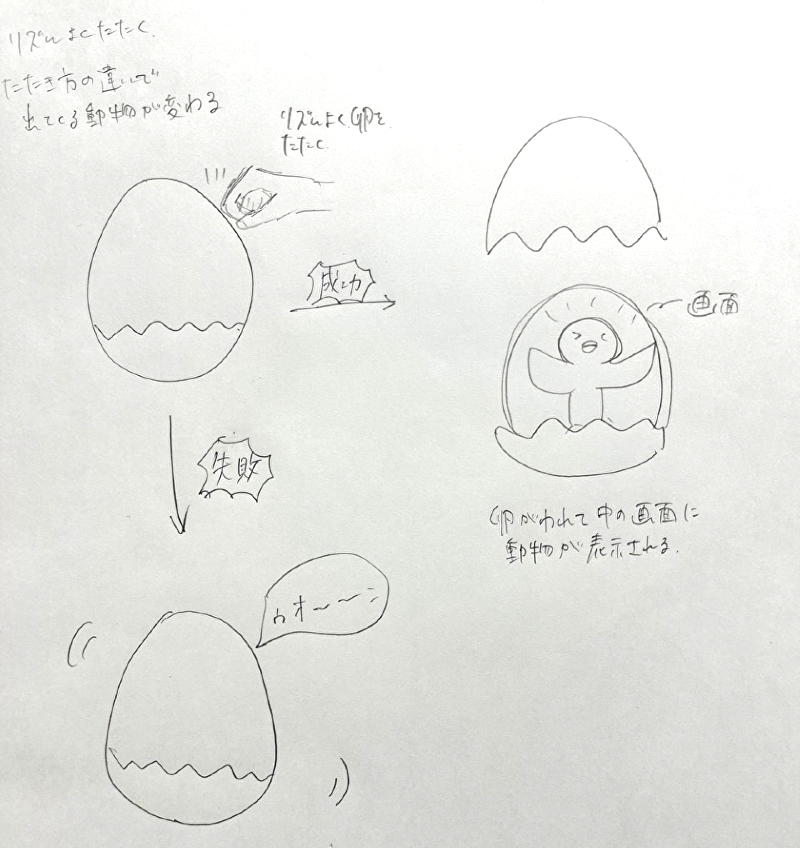 リズムよくたたく。
たたき方の違いで
出てくる動物が変わる
リズムよく卵を
たたく
成功
画面
失敗
卵がわれて中の画面に
動物が表示される。
ウオ〜〜